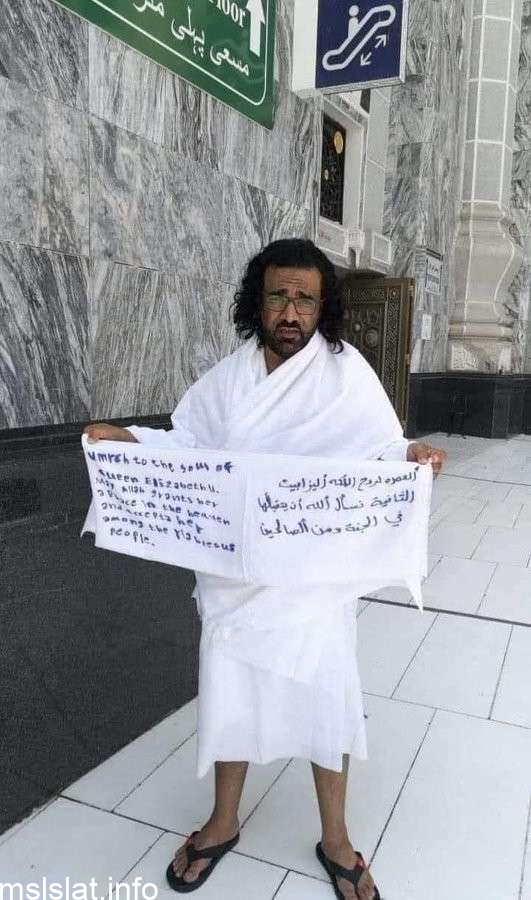 Floor
مسعى پہلی منزل
umrah to the soul of
Queen Elizabeth II.
May Allah grants her
a place in the heaven
and accepts her
among the
people.
العمره لروح الملكه أليزابيث
الثانية نسأل الله ان يتقبلها
في الجنة ومن الصالحين
mslslat.info